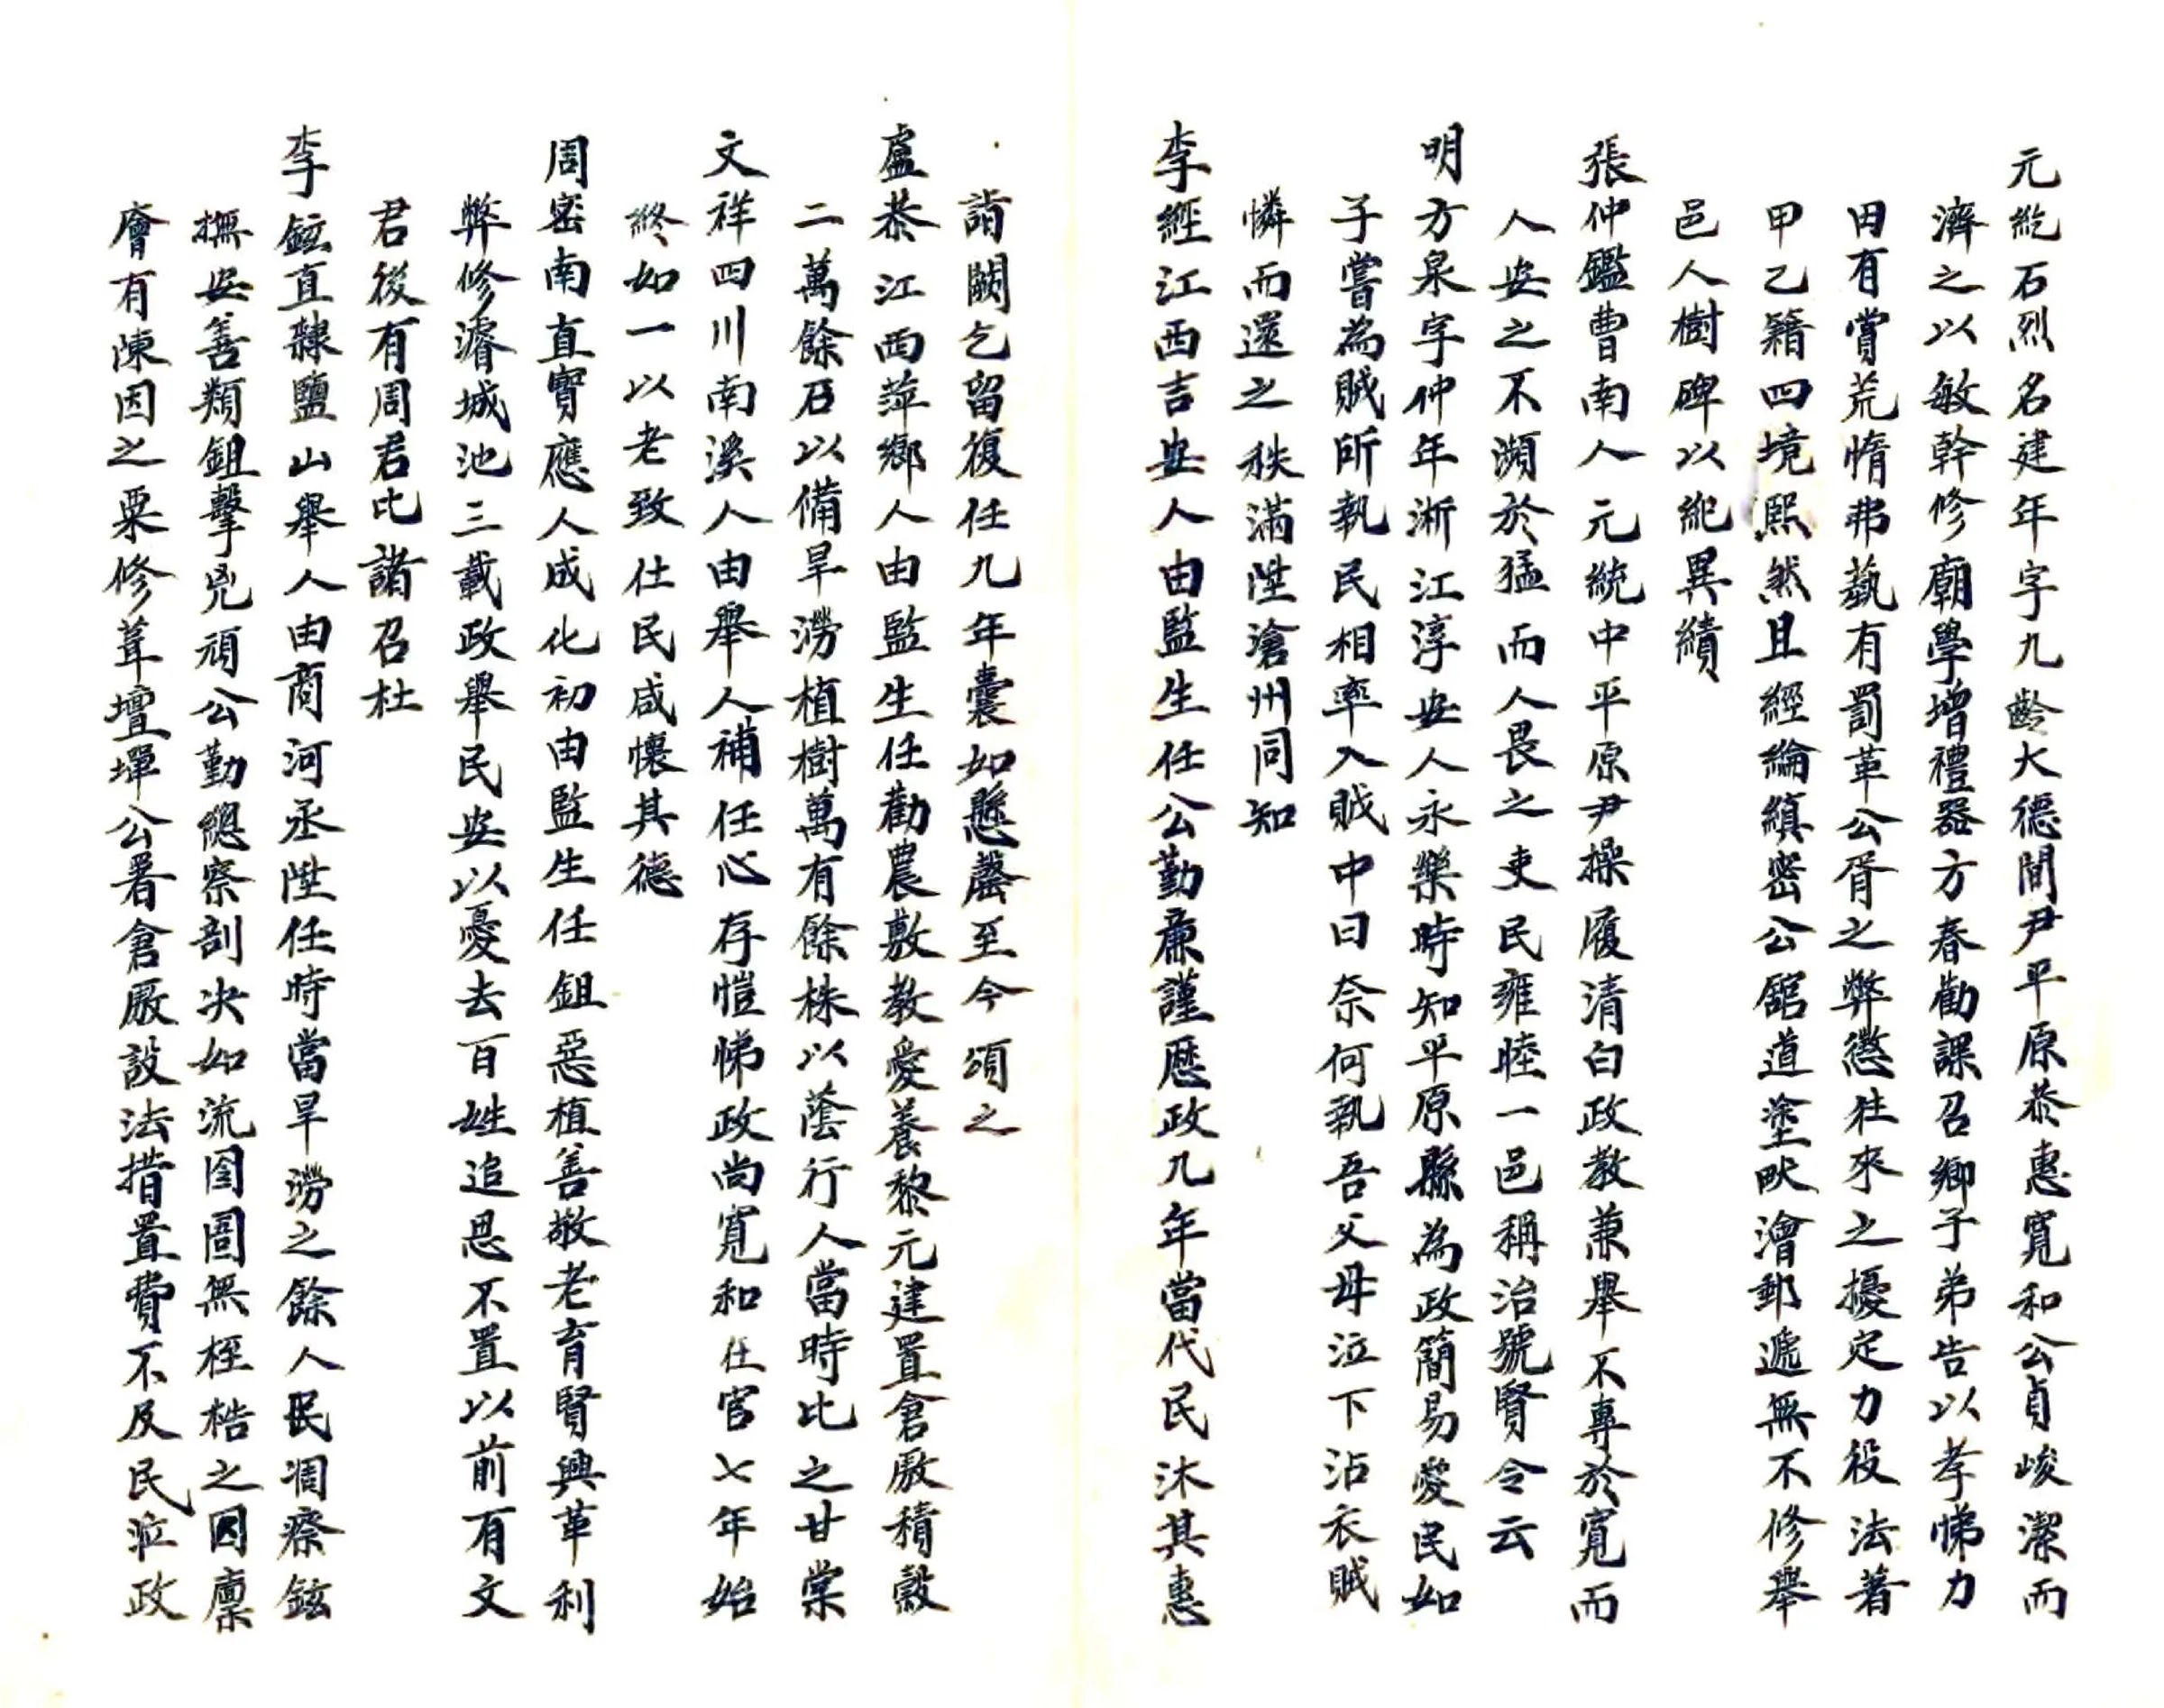 元紇石烈名建年字九齡大德間尹平原恭惠寬和公貞峻潔而
濟之以敏幹修廟學增禮器方春勸課召鄉子弟告以孝悌力
田有賞荒惰弗藝有罰革公胥之弊懲往來之擾定力役法著
甲乙籍四境熙然且經綸縝密公舘道塗畎澮郵遞無不修舉
邑人樹碑以紀異績
張仲鑑曹南人元統中平原尹操履清白政教兼舉不專於寬而
人安之不瀕於猛而人畏之吏民雍睦一邑稱治號賢令云
明方泉字仲年淅江淳安人永樂時知平原縣為政簡易愛民如
子嘗為賊所執民相率入賊中曰奈何執吾父母泣下沾衣賊
憐而還之秩滿陞滄州同知
李經江西吉安人由監生任公勤亷謹歷政九年當代民沐其惠
詣闕乞留復任九年囊如懸罄至今頌之
盧恭江西萍鄉人由監生任勸農敷教愛養黎元建置倉厫積穀
二萬餘石以備旱澇植樹萬有餘株以蔭行人當時比之甘棠
文祥四川南溪人由舉人補任心存愷悌政尚寬和在官七年始
終如一以老致仕民咸懷其德
周密南直寶應人成化初由監生任鉏惡植善敬老育賢興革利
弊修濬城池三載政舉民安以憂去百姓追思不置以前有文
君後有周君比諸召杜
李鉉直隸鹽山舉人由商河丞陞任時當旱澇之餘人民凋瘵鉉
撫安善類鉏擊兇頑公勤總察剖决如流囹圄無桎梏之囚廩
廥有陳因之粟修葺壇墠公署倉厫設法措置費不及民涖政